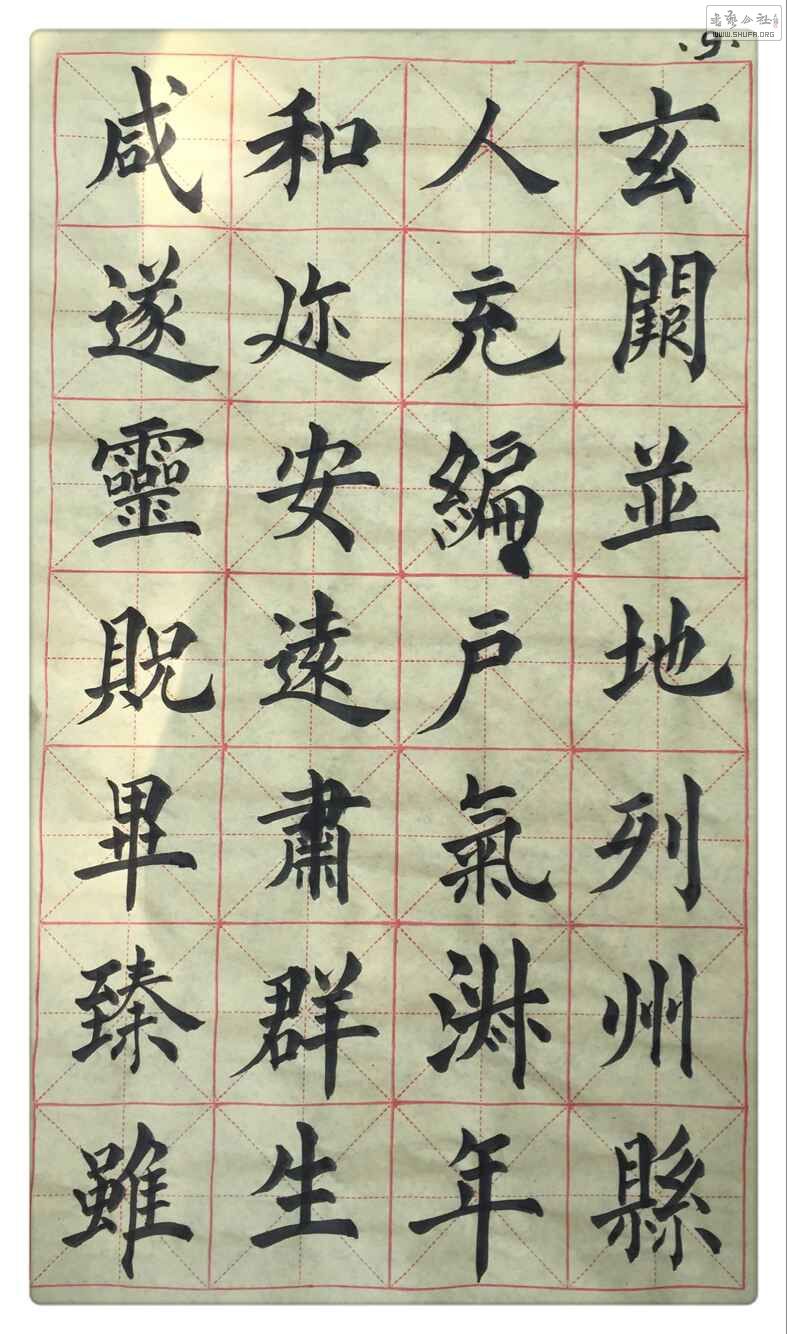 書藝公社
WWW.SHUFA.ORG
.9.
玄闕並地列州縣
人充編戶氣淋年
和迩安遠肅群生
咸遂靈貺畢臻雖